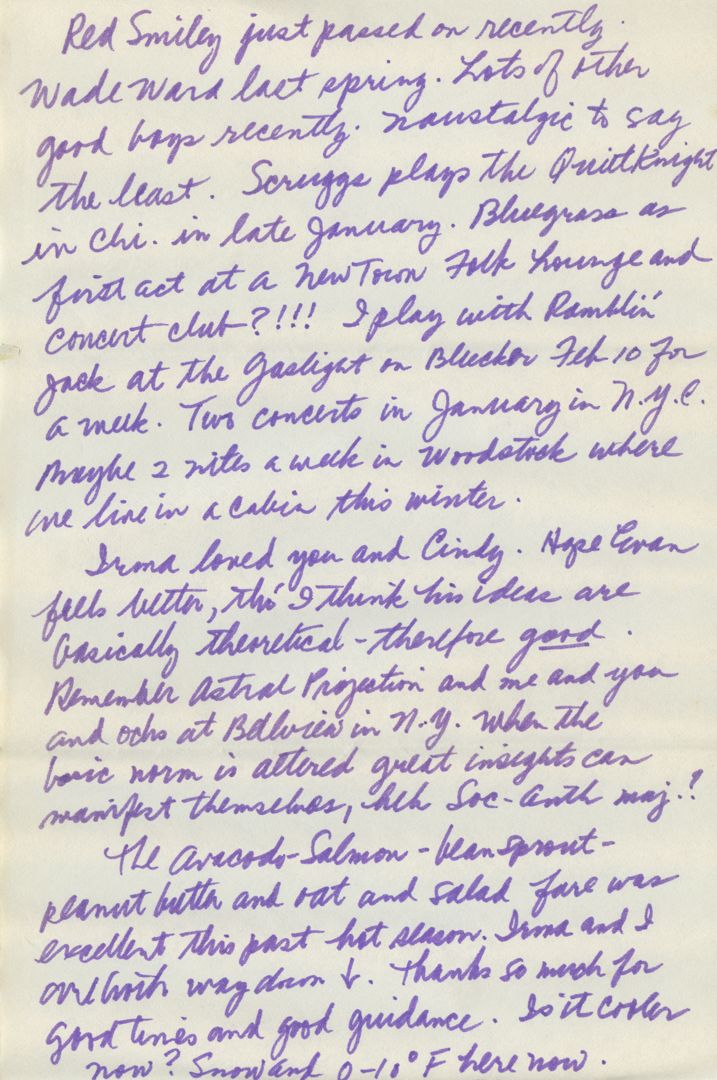 Red Smiley just passed on recently.
Wade Ward last spring. Lots of other
good boys recently. Naustalgic to say
the least. Scruggs plays the Quiet Knight
in Chi. in late January. Bluegrass as
first act at a New Town Folk Lounge and
concert club?!!! I play with Ramblin'
Jack at the Gaslight on Bleecker Feb 10 for
a week. Two concerts in January in N.Y.C.
Maybe 2 nites a week in Woodstock where
we live in a cabin this winter.
Irma loved you and Cindy. Hope Evan
feels better, tho' I think his ideas are
basically theoretical - therefore good.
Remember Astral Projection and me and you
and Ochs at Bellview in N.Y. When the
basic norm is altered great insights can
manifest themselves, heh Soc-Anth maj.?
The Avacodo-Salmon-bean sprout-
peanut butter and oat and salad fare was
excellent this past hot season. Irma and I
are both way down ↓. Thanks so much for
good times and good guidance. Is it cooler
now? Snow and 0-10° F here now.